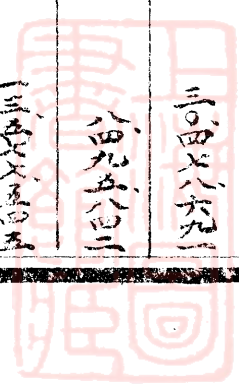 三〇四七八六九一
八四九五八四二
一三五七七五四五